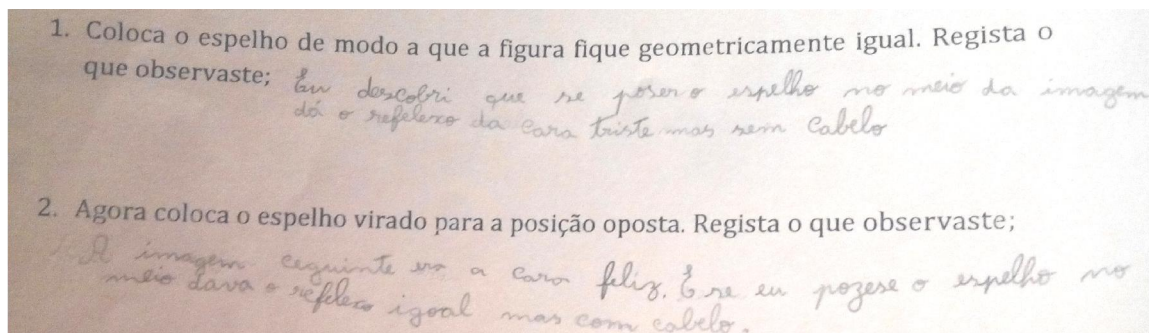 1. Coloca o espelho de modo a que a figura fique geometricamente igual. Regista o
que observaste; Eu descobri que se poser o espelho no meio da imagem
dá o refelexo da cara triste mas sem cabelo
2. Agora coloca o espelho virado para a posição oposta. Regista o que observaste;
A imagem ceguinte era a cara feliz. E se eu pozese o espelho no
meio dava o refelexo igoal mas com cabelo.